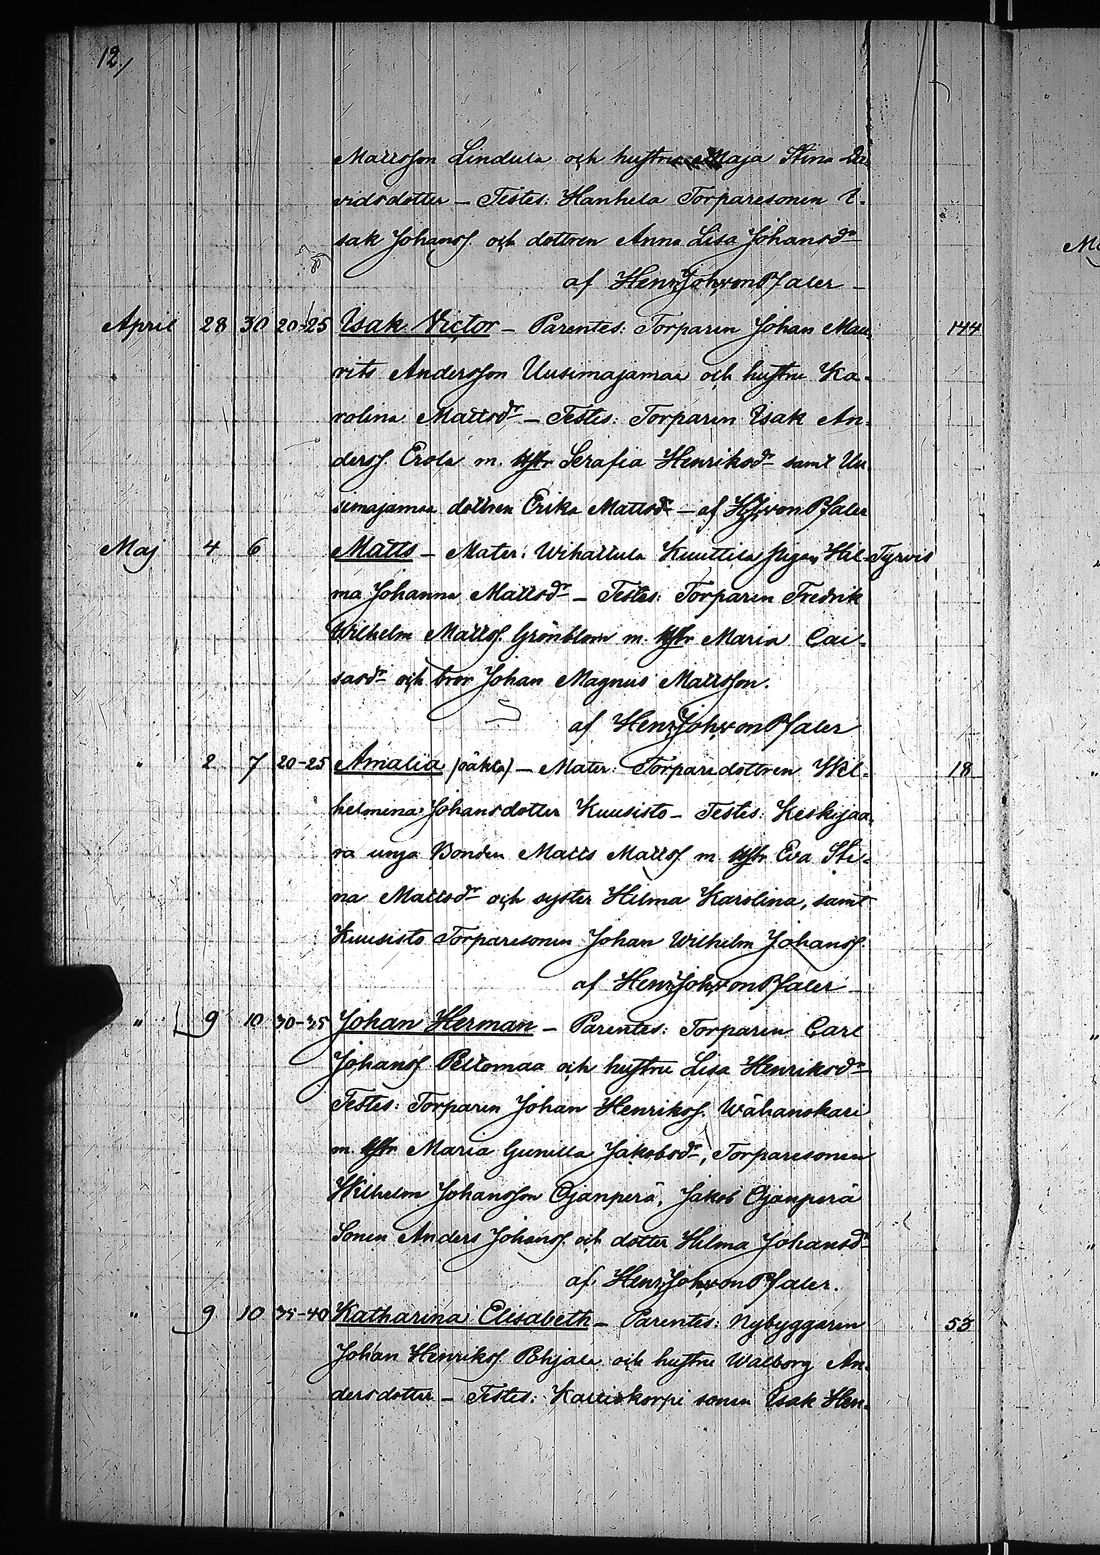 12./
Mattsson Lindula och hustru Maja Stina Da-
vidsdotter – Testes: Hanhela Torparesonen I-
sak Johanss. och dottren Anna Lisa Johansdr
af Henr. Joh. von Pfaler –
April 28 30 20-25 Isak Victor – Parentes: Torparen Johan Mau- 144
rits Andersson Uusimajamaa och hustru Ka-
rolina Mattsdr – Testes: Torparen Isak An-
derss. Erola m. hstr Serafia Henriksdr samt Uu-
simajamaa dottren Erika Mattsdr – af H.J. von Pfaler
Maj 4 6 Matts – Mater: Wihattula Kuuttila pigan Hil- Tyrvis
ma Johanna Mattsdr – Testes: Torparen Fredrik
Wilhelm Mattss. Grönblom m. hstr Maria Cai-
sasdr och bror Johan Magnus Mattsson.
af Henr. Joh. von Pfaler
" 2 7 20-25 Amalia (oäkta) – Mater: Torparedottren Wil- 18
helmina Johansdotter Kuusisto – Testes: Keskijaa-
ra unga Bonden Matts Mattss. m. hstr Eva Sti-
na Mattsdr och syster Hilma Karolina, samt
Kuusisto Torparesonen Johan Wilhelm Johanss.
af Henr. Joh. von Pfaler –
" 9 10 30-35 Johan Herman – Parentes: Torparen Carl
Johanss. Peltomaa och hustru Lisa Henriksdr
Testes: Torparen Johan Henrikss. Wähanskari
m. hstr Maria Gunilla Jakobsdr, Torparesonen
Wilhelm Johansson Ojanperä, Jakob Ojanperä
Sonen Anders Johanss. och dotter Hilma Johansdr
af Henr. Joh. von Pfaler.
" 9 10 35-40 Katharina Elisabeth – Parentes: Nybyggaren 53
Johan Henrikss. Pohjala och hustru Walborg An-
dersdotter – Testes: Kallioskorpi sonen Isak Hen-